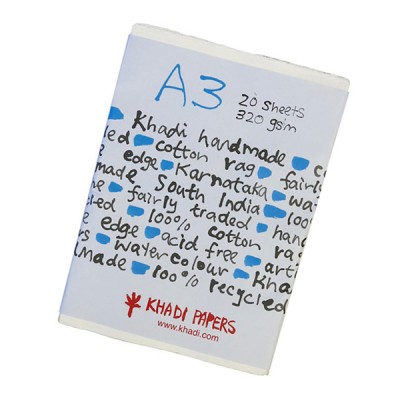 A3
20 Sheets
320 gsm
Khadi handmade
cotton rag fairly
edge Karnataka
made South India 100
fairly traded
100% cotton rag
edge acid free
watercolour Kha
made 100% recycled
KHADI PAPERS
www.khadi.com